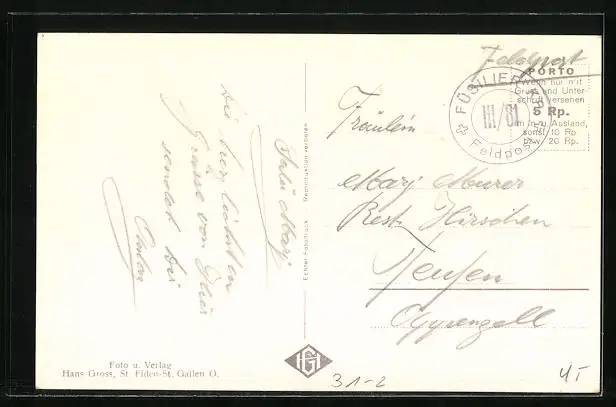 Salü Mary
Die herzlichsten
Grüsse von Hier
sendet Dir
Feldpost
PORTO
Wenn nur mit
Gruss und Unter-
schrift versehen
5 Rp.
im In- u. Ausland,
sonst 10 Rp
bzw. 20 Rp.
FÜSILIER
III/81
Feldpost
Fräulein
Mary Maurer
Rest. Hirschen
Teufen
Appenzell
Echter Fotodruck Reproduktion verboten
Foto u. Verlag
Hans Gross, St. Fiden-St. Gallen O.
HG
31-2